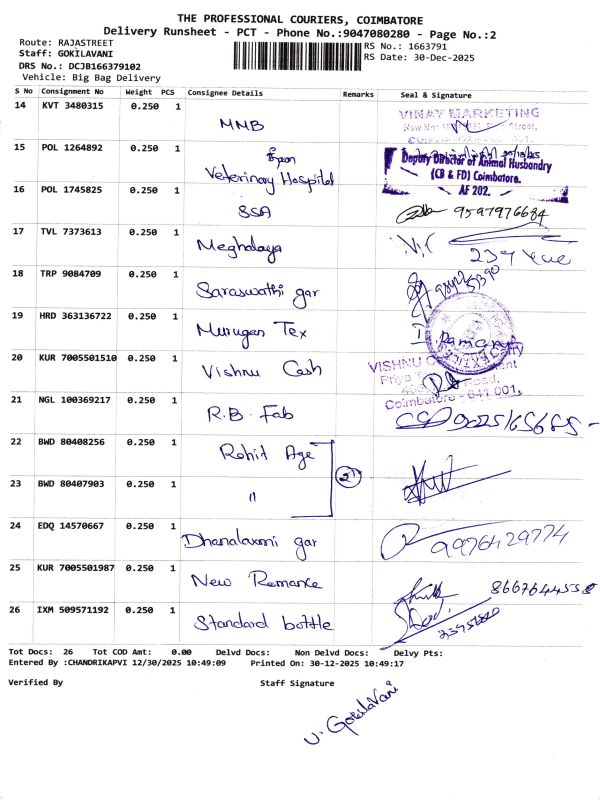 THE PROFESSIONAL COURIERS, COIMBATORE
Delivery Runsheet - PCT - Phone No.:9047080280 - Page No.:2
Route: RAJASTREET
Staff: GOKILAVANI
DRS No.: DCJB166379102
Vehicle: Big Bag Delivery
RS No.: 1663791
RS Date: 30-Dec-2025
S No Consignment No Weight PCS Consignee Details Remarks Seal & Signature
14 KVT 3480315 0.250 1 MMB
VINAY MARKETING
15 POL 1264892 0.250 1
Veterinary Hospital
Deputy Director of Animal Husbandry
(CB & FD) Coimbatore.
AF 202.
16 POL 1745825 0.250 1 SSA 9597976684
17 TVL 7373613 0.250 1 Meghalaya
18 TRP 9084709 0.250 1 Saraswathi gar
19 HRD 363136722 0.250 1 Murugan Tex
20 KUR 7005501510 0.250 1 Vishnu Cash
VISHNU
Coimbatore - 641 001.
21 NGL 100369217 0.250 1 R.B. Fab
22 BWD 80408256 0.250 1 Rohit Age
23 BWD 80407903 0.250 1 "
24 EDQ 14570667 0.250 1 Dhanalaxmi gar 9976429774
25 KUR 7005501987 0.250 1 New Romance 8667644558
26 IXM 509571192 0.250 1 Standard bottle
Tot Docs: 26 Tot COD Amt: 0.00 Delvd Docs: Non Delvd Docs: Delvy Pts:
Entered By :CHANDRIKAPVI 12/30/2025 10:49:09 Printed On: 30-12-2025 10:49:17
Verified By Staff Signature
V. Gokilavani